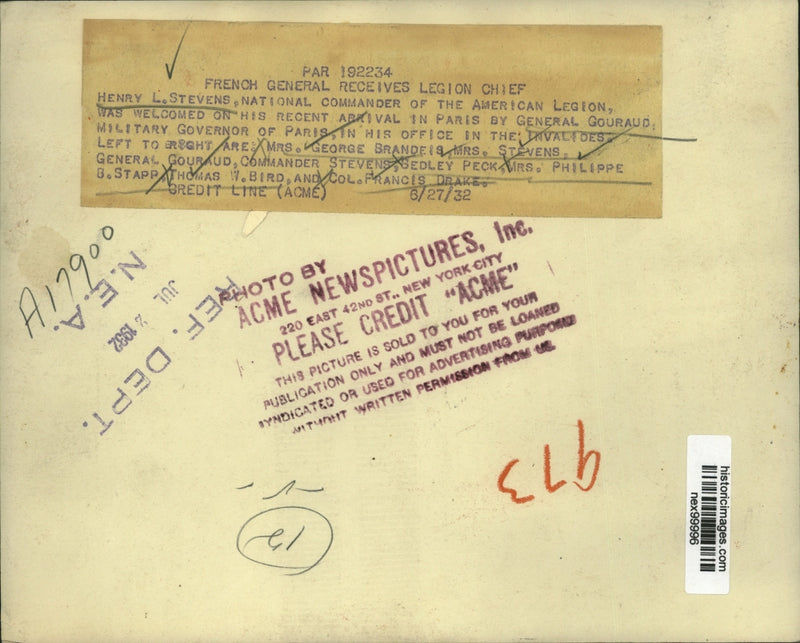 PAR 192234
FRENCH GENERAL RECEIVES LEGION CHIEF
HENRY L. STEVENS, NATIONAL COMMANDER OF THE AMERICAN LEGION,
WAS WELCOMED ON HIS RECENT ARRIVAL IN PARIS BY GENERAL GOURAUD,
MILITARY GOVERNOR OF PARIS, IN HIS OFFICE IN THE INVALIDES.
LEFT TO RIGHT ARE: MRS. GEORGE BRANDEIS, MRS. STEVENS,
GENERAL GOURAUD, COMMANDER STEVENS, SEDLEY PECK, MRS. PHILIPPE
B. STAPP, THOMAS W. BIRD, AND COL. FRANCIS DRAKE.
CREDIT LINE (ACME) 6/27/32
A17900
REF. DEPT.
JUL 2 1932
N.E.A.
PHOTO BY
ACME NEWSPICTURES, Inc.
220 EAST 42ND ST., NEW YORK CITY
PLEASE CREDIT "ACME"
THIS PICTURE IS SOLD TO YOU FOR YOUR
PUBLICATION ONLY AND MUST NOT BE LOANED
SYNDICATED OR USED FOR ADVERTISING PURPOSES
WITHOUT WRITTEN PERMISSION FROM US.
973
historicimages.com
nex99996